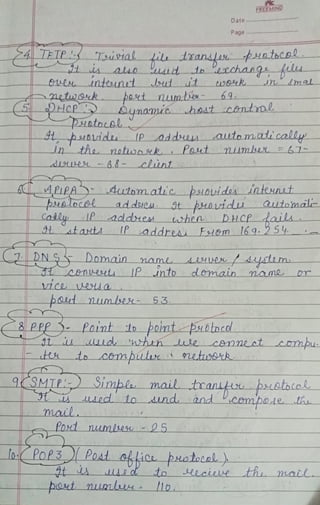 FREEMIND
Date
Page
4. TFTP:- Trivial file transfer protocol.
It is also used to exchange files
over internet but it work in smal
network. port number- 69.
5. DHCP:- Dynamic host control
Protocol
It provides IP address automatically
in the network. Port number = 67-
server - 68 - client
6. APIPA - Automatic provides internet
protocol address. It provides automati-
cally IP address when DHCP fails.
It starts IP address From 169.254.
7. DNS - Domain name server / system
It converts IP into domain name or
vice versa.
port number - 53.
8. PPP - Point to point protocol
It is used when we connect compu-
ter to computer network
9. SMTP:- Simple mail transfer protocol
It is used to send and compose the
mail.
Port number - 25
10. POP3 (Post office protocol)
It is used to recieve the mail.
port number - 110.